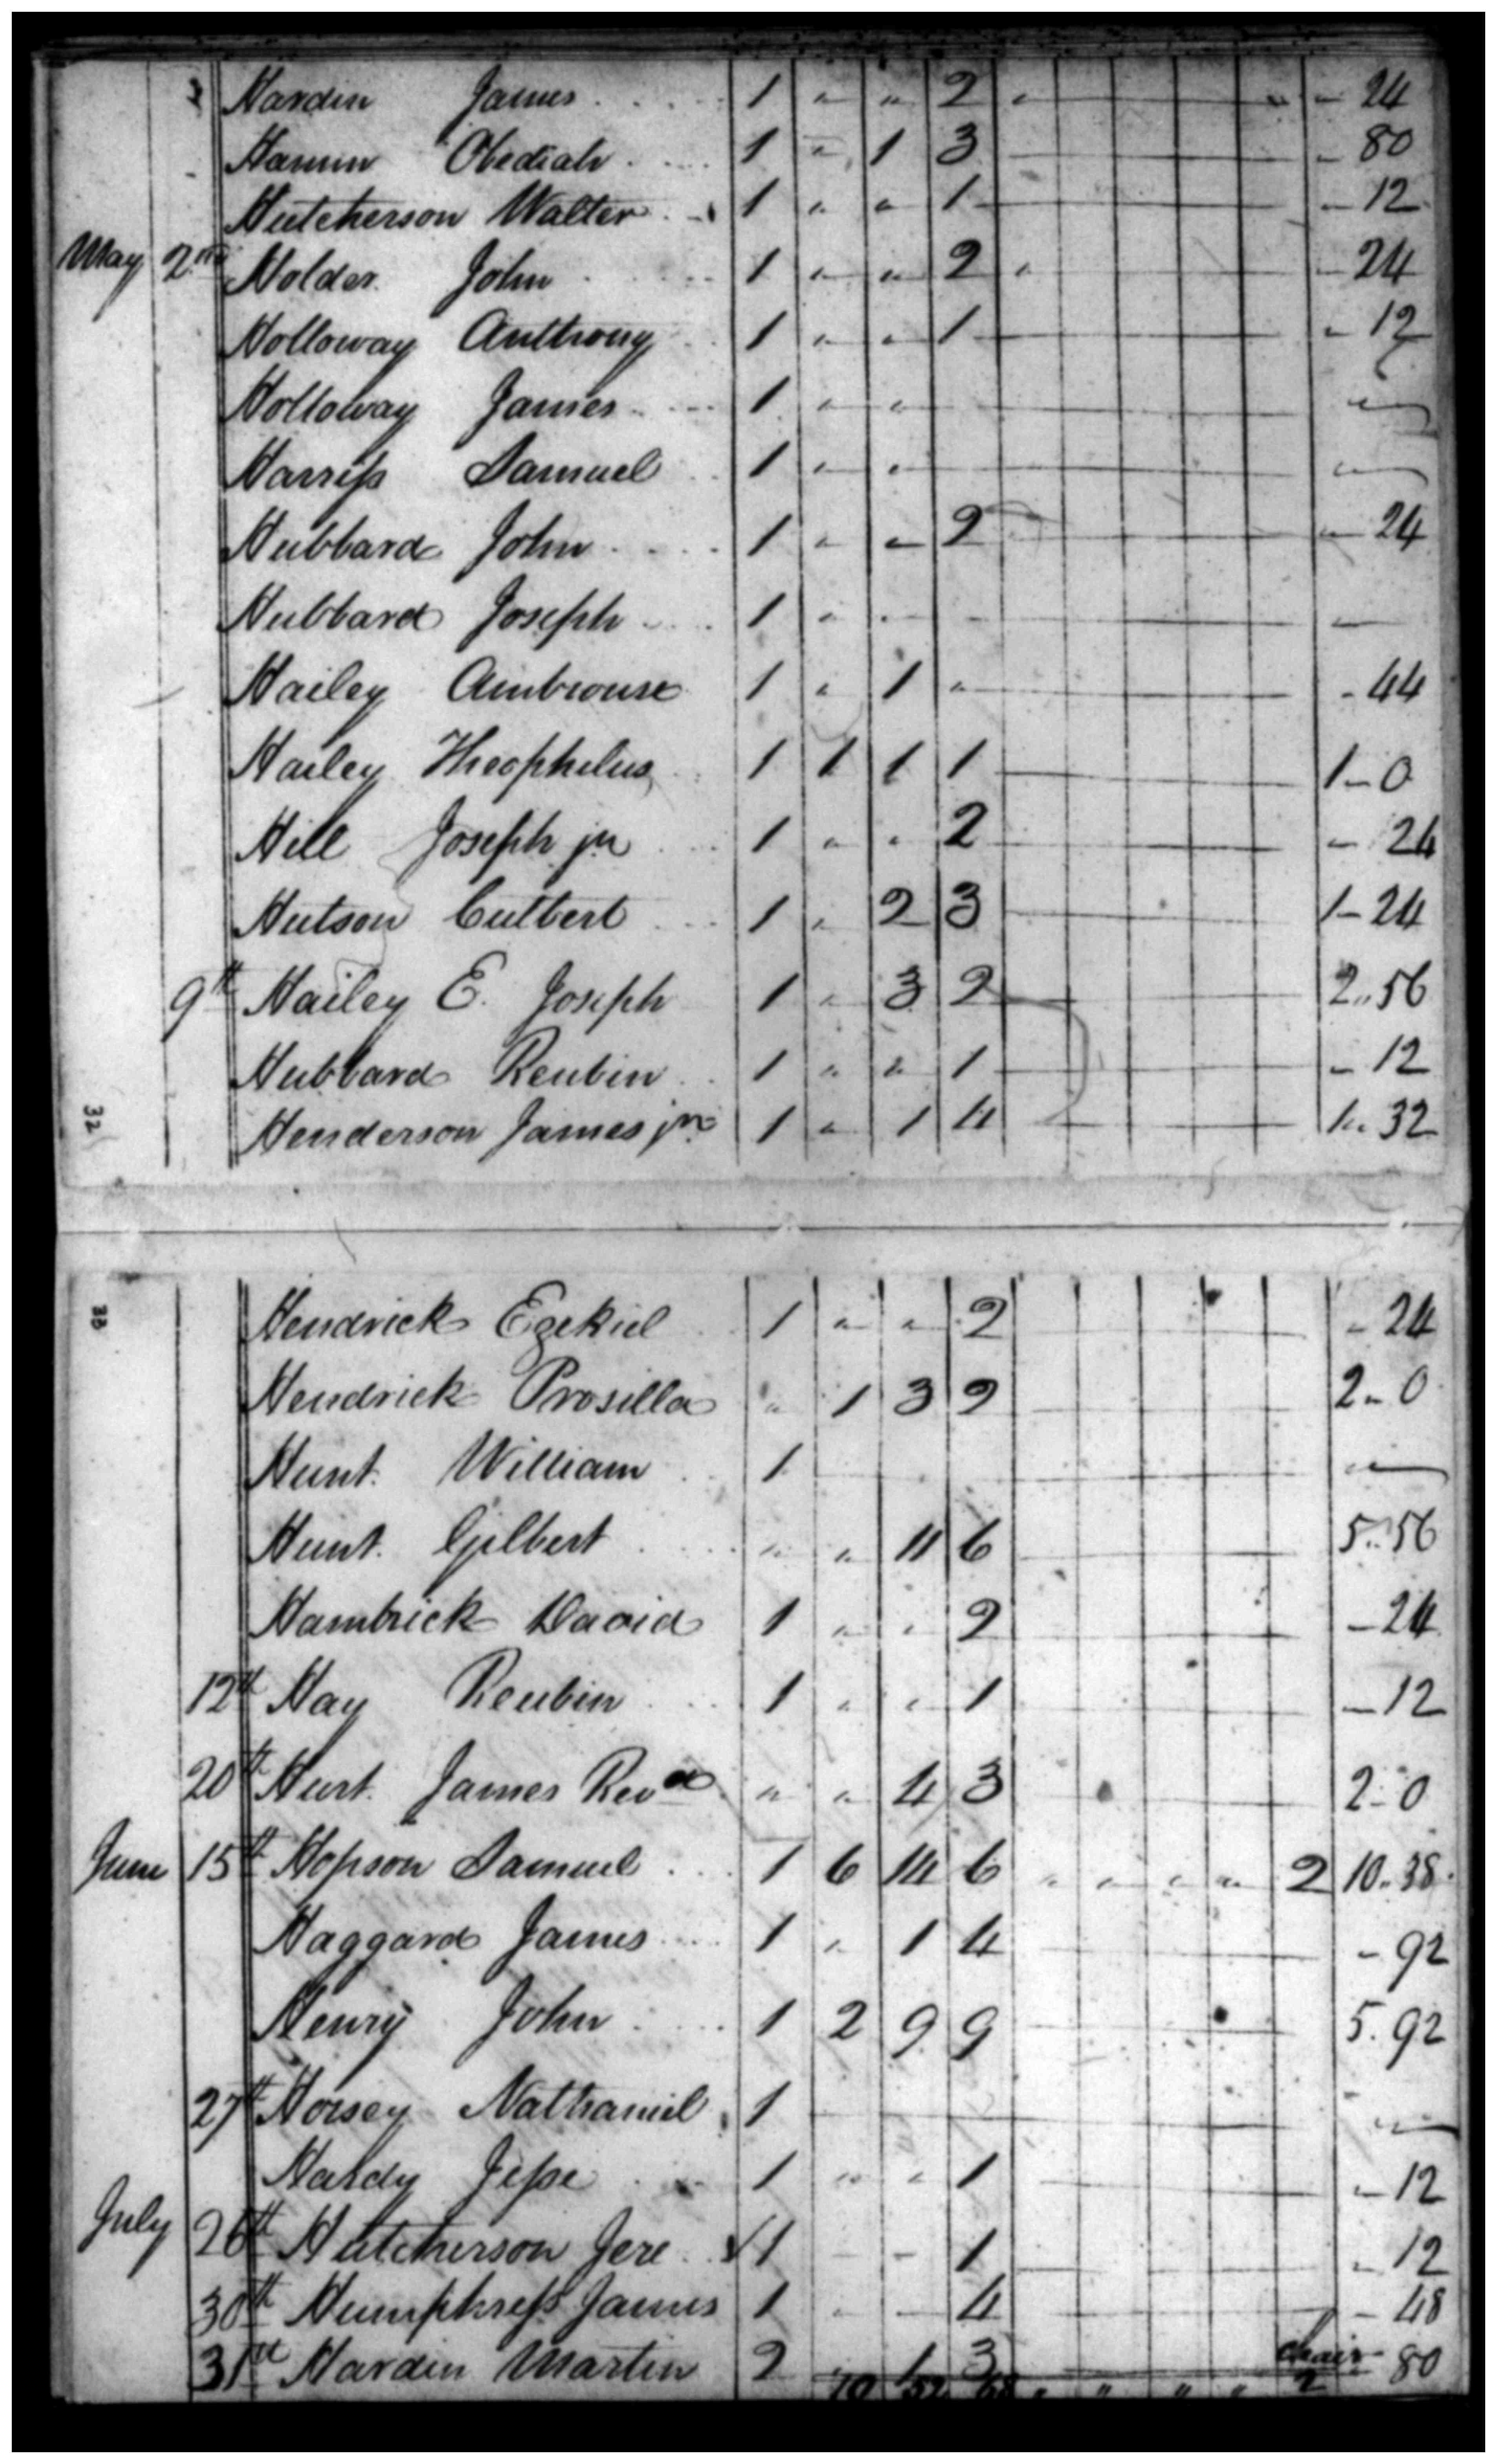 Hardin James 1 " " 2 - 24
Hamm Obediah 1 " 1 3 - 80
Hutcherson Walter 1 " " 1 - 12
May 2nd Holder John 1 " " 2 - 24
Holloway Anthony 1 " " 1 - 12
Holloway James 1 " "
Harriss Samuel 1 " "
Hubbard John 1 " " 2 - 24
Hubbard Joseph 1 " "
Hailey Ambrouse 1 " 1 " - 44
Hailey Theophelus 1 1 1 1 1 - 0
Hill Joseph jr 1 " " 2 - 24
Hutson Cutbert 1 " 2 3 1 - 24
9th Hailey E. Joseph 1 " 3 2 2 .. 56
Hubbard Reubin 1 " " 1 - 12
32 Henderson James jr 1 " 1 4 1 .. 32
33 Hendrick Ezekiel 1 " " 2 - 24
Hendrick Prosilla " 1 3 2 2 - 0
Hunt William 1
Hunt Gilbert " " 11 6 5 .. 56
Hambrick David 1 " " 2 - 24
12th Hay Reubin 1 " " 1 - 12
20th Hurt James Revd " " 4 3 2 - 0
June 15th Hopson Samuel 1 6 14 6 " " " " 2 10 .. 38
Haggard James 1 " 1 4 - 92
Henry John 1 2 9 9 5 . 92
27th Horsey Nathaniel 1
Hardy Jesse 1 " " 1 - 12
July 26th Hutcherson Jere 1 - - 1 - 12
30th Humphress James 1 - - 4 - 48
31st Hardin Martin 2 1 3 - 80
chair
10 52 68 " " " " 2